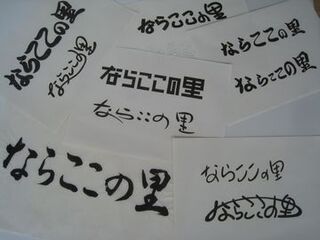 ならここの里
ならここの里
ならここの里
ならここの里
ならここの里
ならここの里
ならここの里
ならここの里
ならここの里
ならここの里
ならここの里